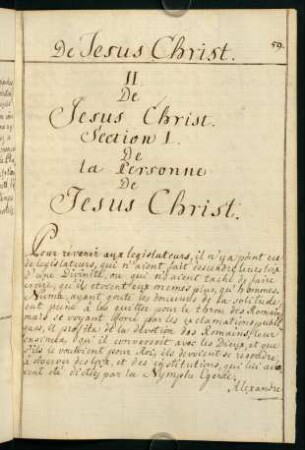 De Jesus Christ. 59.
II
De
Jesus Christ.
Section I.
De
la Personne
De
Jesus Christ.
Pour revenir aux legislateurs, il n'y a point eu
de legislateurs, qui n'aient fait descendre leurs loix
d'une Divinité, ou qui n'aient taché de faire
croire, qu'ils etoient eux memes plus, qu'hommes.
Numa, ayant gouté les douceurs de la solitude
eut peine à les quitter pour le thron des Romains
mais se voyant forcé par les acclamations publi-
ques, il profita de la devotion des Romains, leur
qu'il conversoit avec les Dieux, et que
s'ils le vouloient pour Roi, ils devoient se resoudre,
à observer des loix, et des institutions, qui lui av-
oient eté dictés par la Nymphe Egerie.
Alexandre